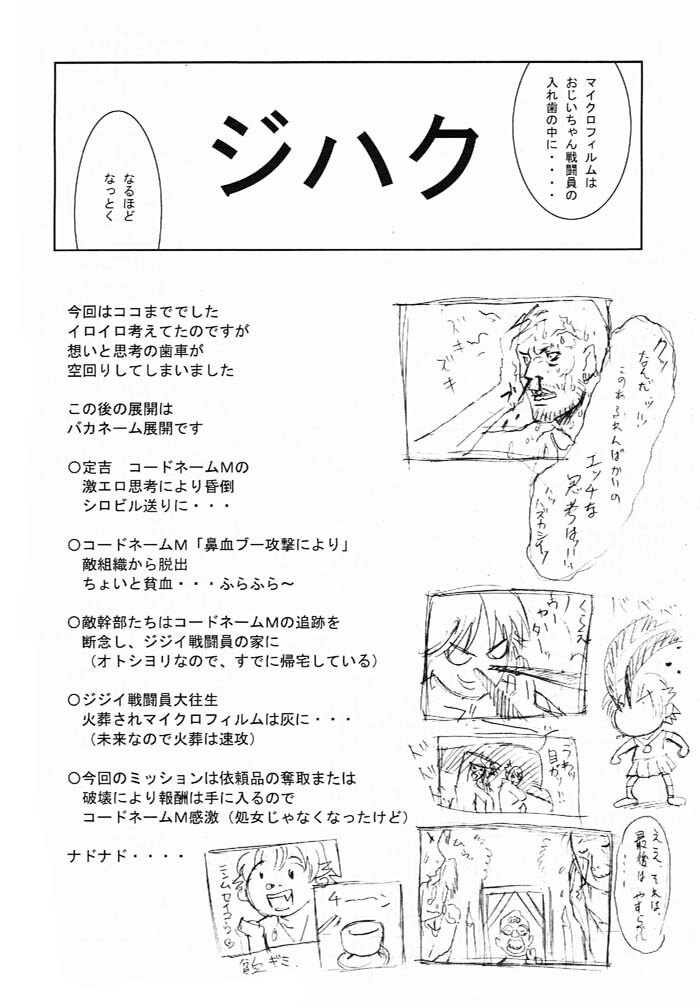 マイクロフィルムは
おじいちゃん戦闘員の
入れ歯の中に・・・・
ジハク
なるほど
なっとく
今回はココまででした
イロイロ考えてたのですが
想いと思考の歯車が
空回りしてしまいました
この後の展開は
バカネーム展開です
○定吉　コードネームMの
激エロ思考により昏倒
シロビル送りに・・・
○コードネームM「鼻血ブー攻撃により」
敵組織から脱出
ちょいと貧血・・・ふらふら～
○敵幹部たちはコードネームMの追跡を
断念し、ジジイ戦闘員の家に
（オトシヨリなので、すでに帰宅している）
○ジジイ戦闘員大往生
火葬されマイクロフィルムは灰に・・・
（未来なので火葬は速攻）
○今回のミッションは依頼品の奪取または
破壊により報酬は手に入るので
コードネームM感激（処女じゃなくなったけど）
ナドナド・・・・
ズキ
ズキ
クッ
なんだッ!!
このあふれんばかりの
エッチな
思考は!!
ハッ
ハズカシイッ
くらえ
ウリャー
うわっ
目がー!!
ええ、それは、
最後は やすらかに
ニンムセイコウ♡
チーン
貧血ギミ